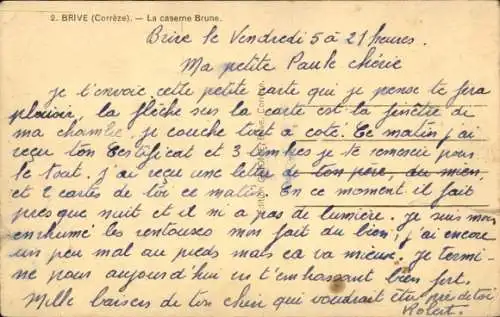 2. BRIVE (Corrèze). — La caserne Brune.
Brive le Vendredi 5 à 21 heures.
Ma petite Paule chérie
je t'envoie cette petite carte qui je pense te fera
plaisir, la flèche sur la carte est la fenêtre de
ma chambre, je couche tout à coté. Ce matin j'ai
reçu ton certificat et 3 timbres je te remercie pour
le tout. j'ai reçu une lettre de ton père, du mien,
et 2 cartes de toi ce matin. En ce moment il fait
presque nuit et il ni a pas de lumière. je suis moins
enrhumé les ventouses mon fait du bien, j'ai encore
un peu mal au pieds mais ca va mieux. je termi-
ne pour aujourd'hui en t'embrassant bien fort.
Mille baisers de ton chéri qui voudrait être près de toi
Robert.